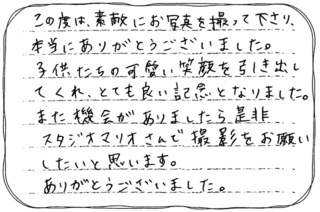 この度は、素敵にお写真を撮って下さり、
本当にありがとうございました。
子供たちの可愛い笑顔を引き出し
てくれ、とても良い記念となりました。
また機会がありましたら是非
スタジオマリオさんで撮影をお願い
したいと思います。
ありがとうございました。